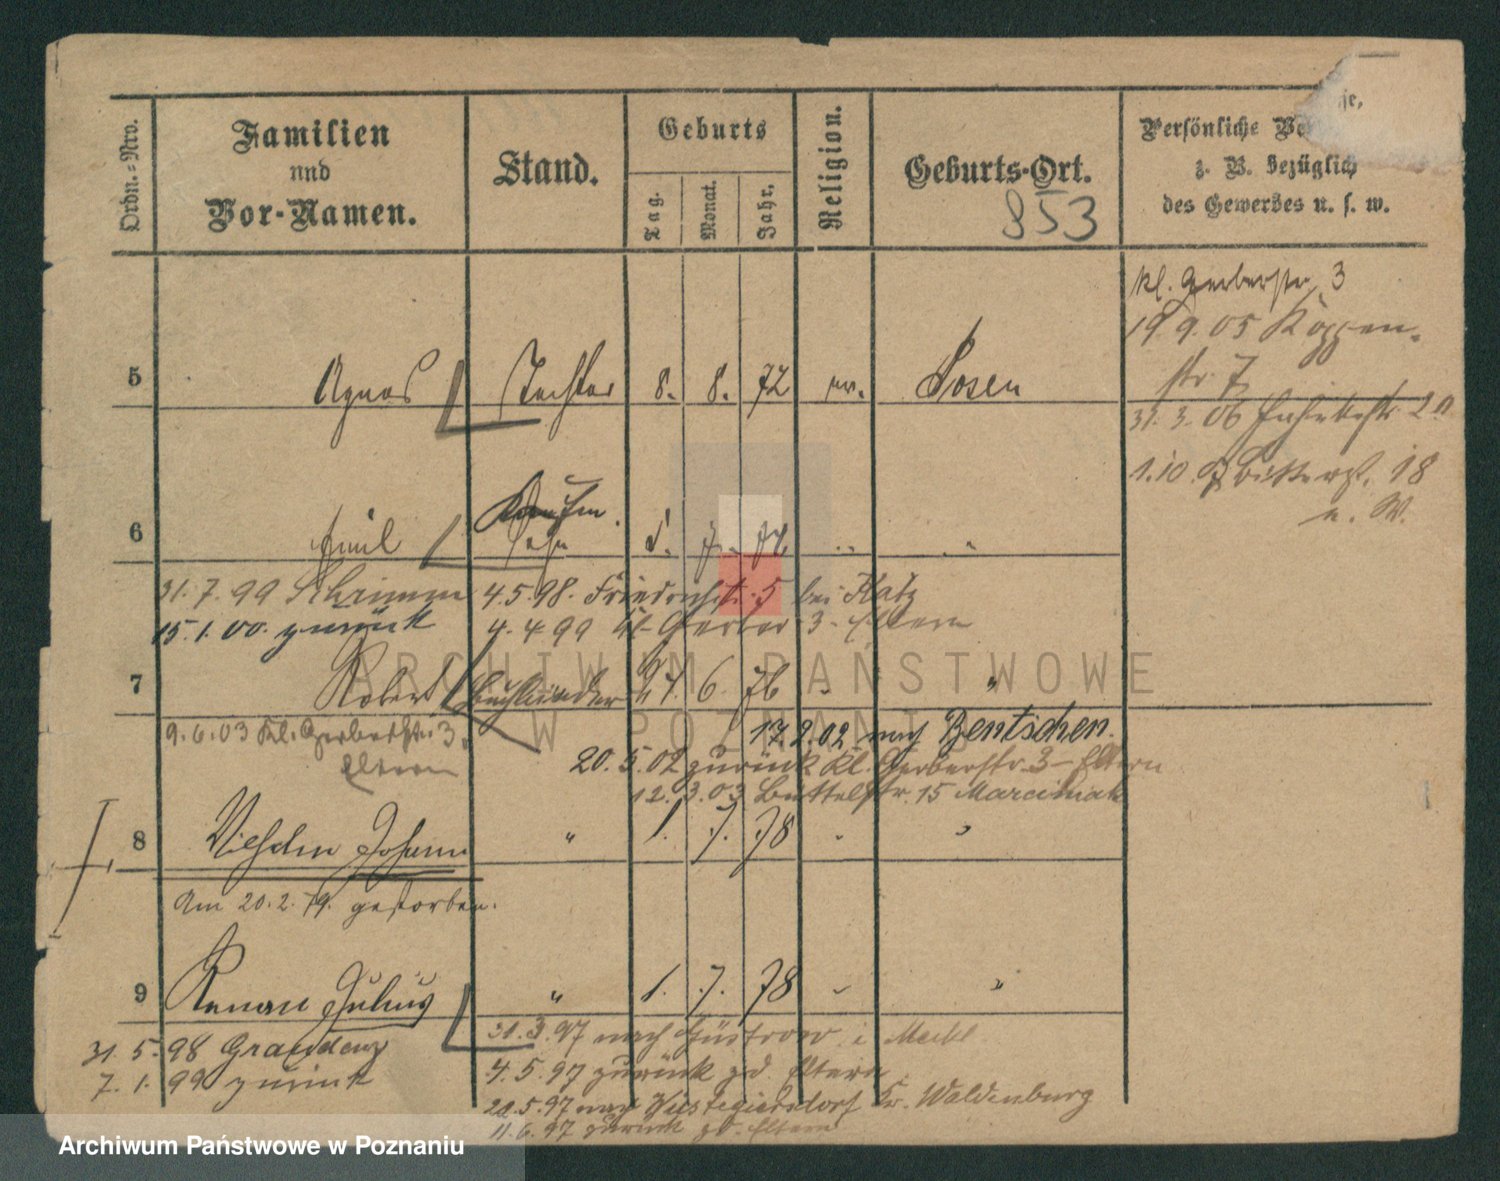 Ordn.-Nro.
Familien
und
Vor-Namen.
Stand.
Geburts
Tag.
Monat.
Jahr.
Religion.
Geburts-Ort.
853
Persönliche
z. B. bezüglich
des Gewerbes u. s. w.
kl. Gerberstr. 3
19.9.05 Koppen-
str. 7
5 Agnes Tochter 8. 8. 72 ev. Posen
31.3.06 2a
1.10. Bitterst. 18
n. W.
Kaufm.
6 Emil Sohn 7.
31.7.99 Schrimm
15.1.00. zurück
4.5.98. Friedrichstr. 5 bei Katz
4.4.99 kl. Gerber 3 Eltern
7 Robert Buchbinder 27. 6. 76 "
9.6.03 Kl. Gerberstr. 3.
Eltern
17.2.02 nach Bentschen.
20.5.02 zurück Kl. Gerberstr. 3 Eltern
12.3.03 Büttelstr. 15 Marciniak
8 Wilhelm Johann " 1. 7. 78 " "
Am 20.2.79. gestorben.
9 Renau Julius " 1. 7. 78 " "
31.5.98 Graudenz
7.1.99 zurück
31.3.97 nach Güstrow i Meckl
4.5.97 zurück zd. Eltern
21.5.97 nach Wüstegiersdorf Kr. Waldenburg
11.6.97 zurück zd. Eltern
ARCHIWUM PAŃSTWOWE
W POZNANIU
Archiwum Państwowe w Poznaniu